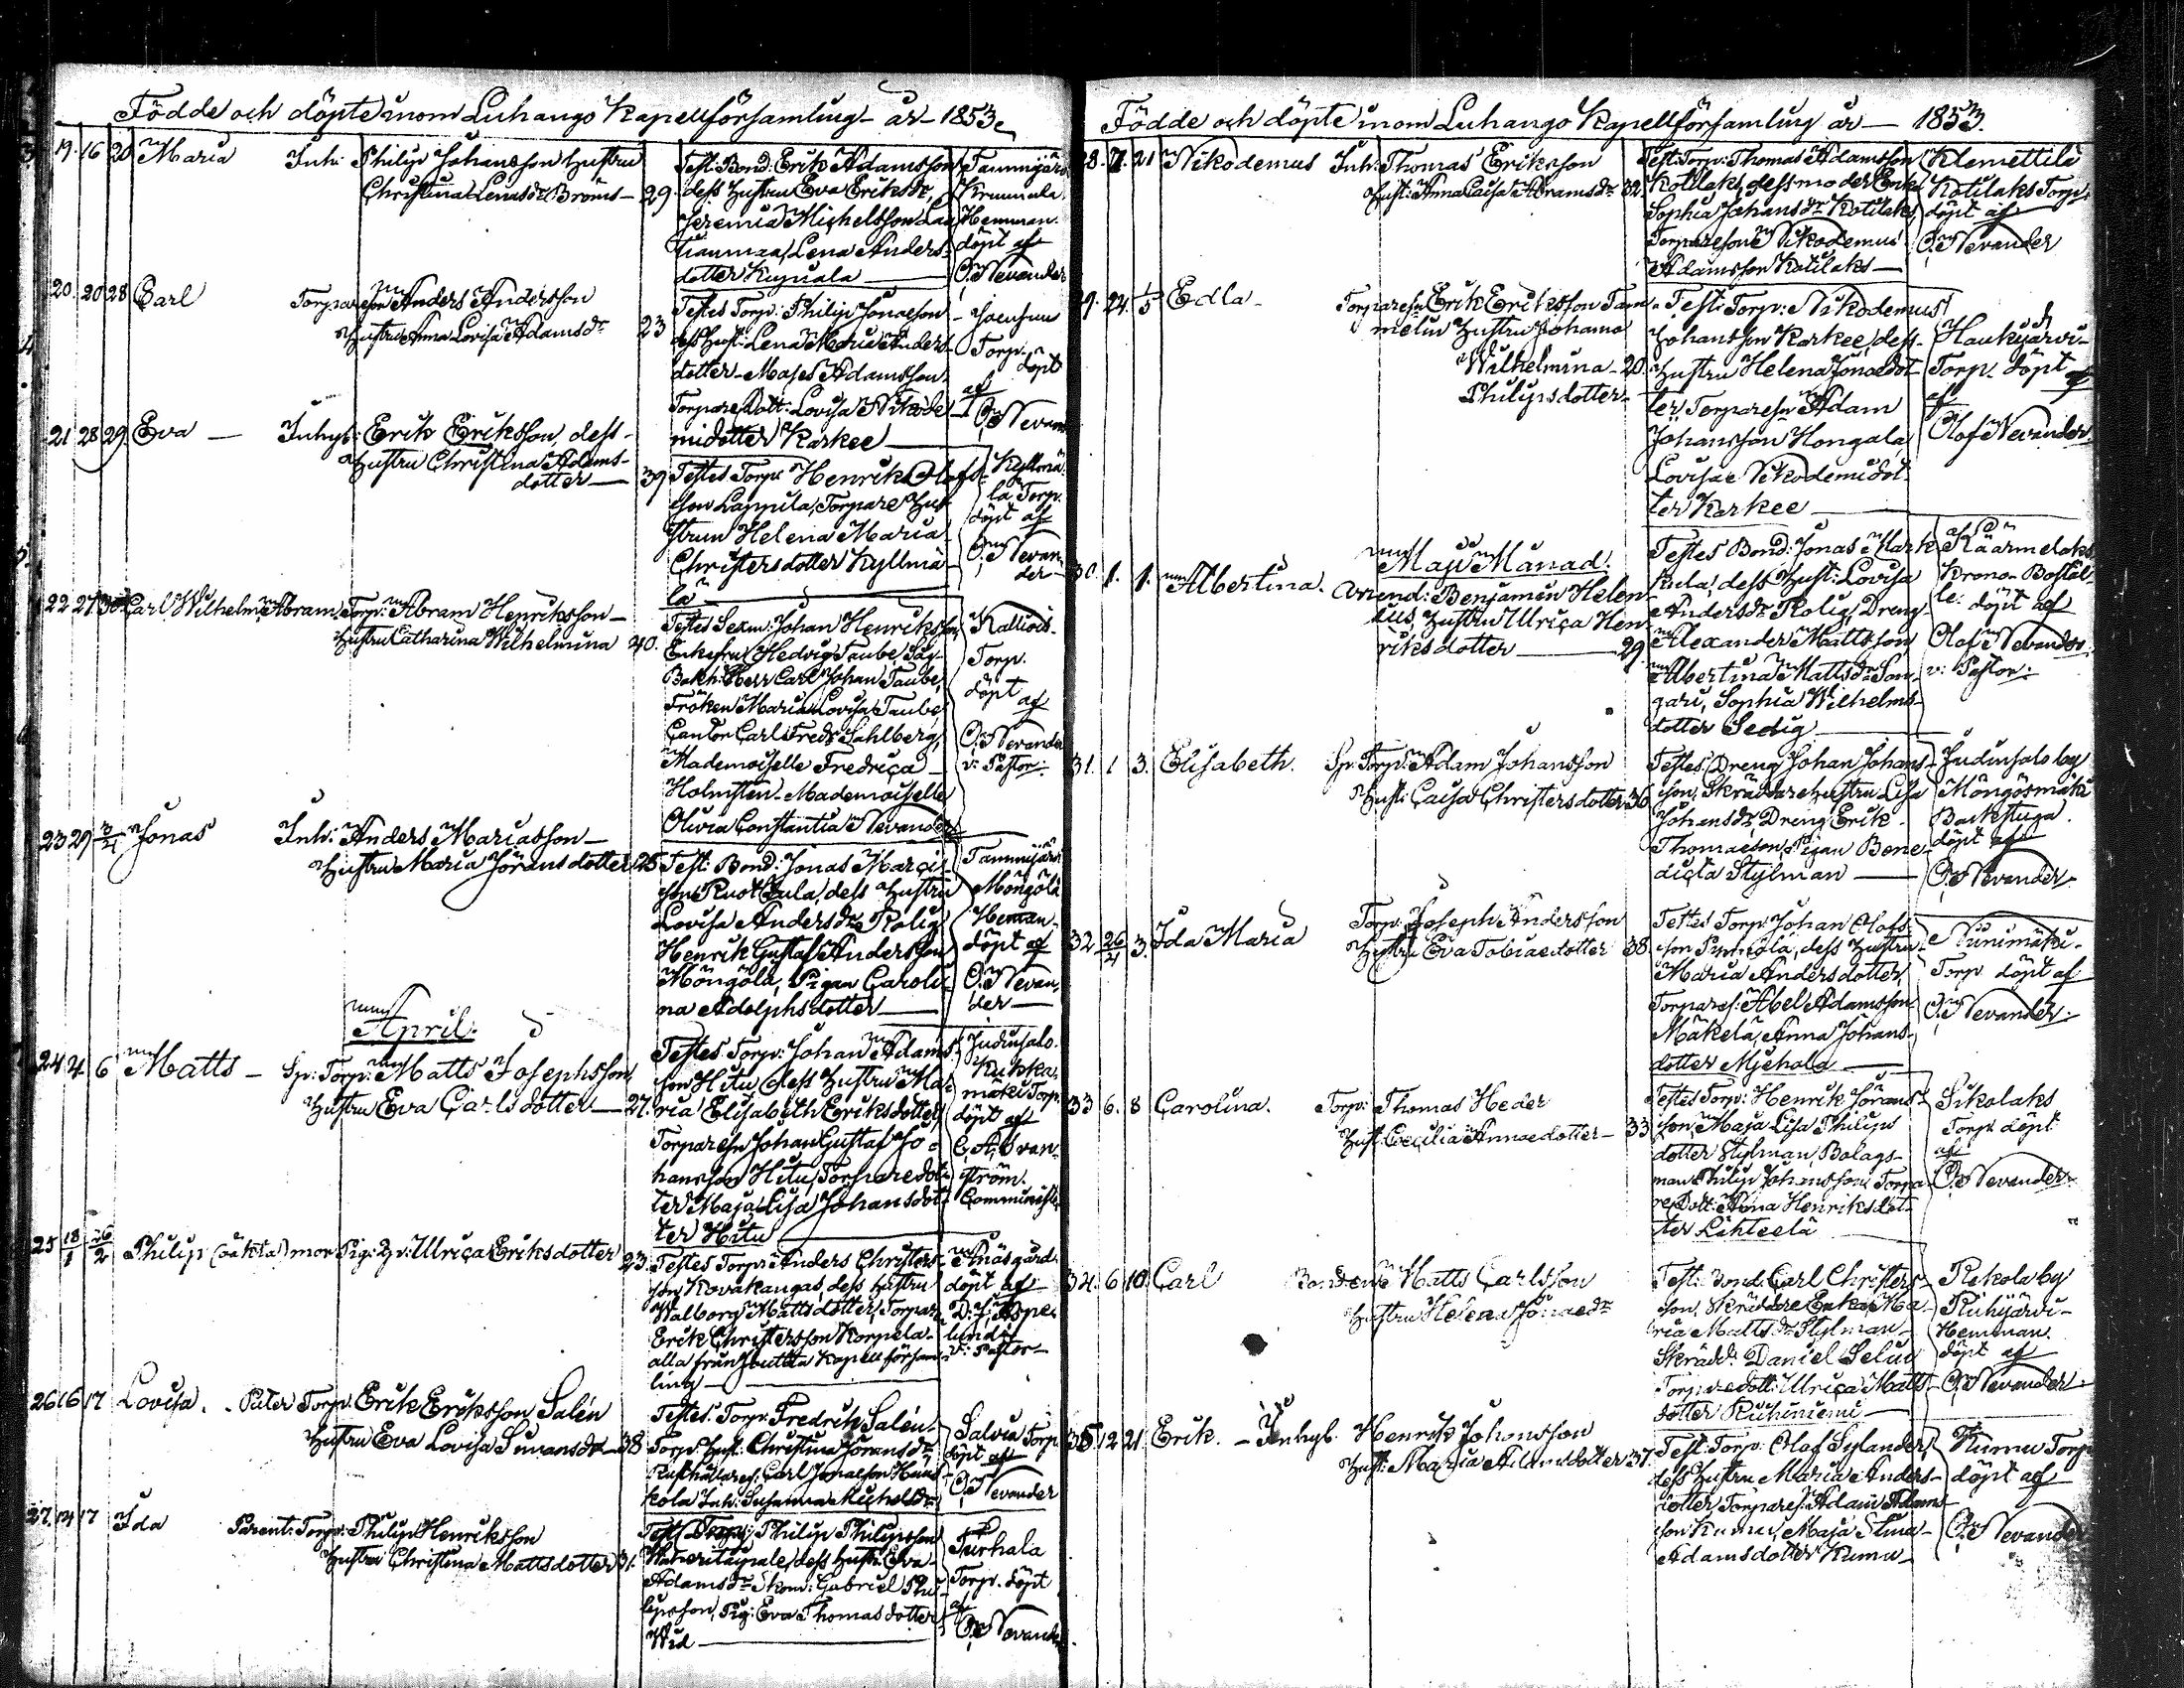 Födde och döpte inom Luhango Kapellförsamling år 1853
19. 16 20 Maria Inh: Philip Johansson hustru
Christina Lenasdr Bröms 29.
Test: Bond: Erik Adamsson
dess hustru Eva Eriksdr,
Jeremia Michelsson
Lena Anders-
dotter
Hemman.
döpt af
O. Nevander
20. 20 28 Carl
Torpareson Anders Andersson
Hustru Anna Lovisa Adamsdr 23
Testes Torp: Philip Jonaeson
dess Hust: Lena Maria Anders-
dotter Moses Adamsson
Torpare Dott: Lovisa Nikode-
midotter Karkee
Torp.
döpt
af
O. Nevander
21 28 29 Eva — Inhys: Erik Eriksson, dess
Hustru Christina Adams-
dotter — 39
Testes Torp: Henrik Olofs-
son Lappila, Torpare Hu-
strun Helena Maria
Christersdotter Kyllmä-
lä
Kyllmä-
lä Torp.
döpt af
O. Nevan-
der
22 27 30 Carl Wilhelm Abram Torp: Abram Henriksson
Hustru Catharina Wilhelmina 40.
Testes Sexm: Johan Henriksson
Enkefru Hedvig Taube,
Bokh: Herr Carl Johan Taube,
Fröken Maria Lovisa Taube,
Cantor Carl Fredr Sahlberg,
Mademoiselle Fredrica
Holmsten Mademoiselle
Olivia Constantia Nevander
Kallois
Torp.
döpt
af
O. Nevander
v: Pastor:
23 29 3/4 Jonas Inh: Anders Mariasson
Hustru Maria Jöransdotter 25
Test: Bond: Jonas Marcis-
son Ruokula, dess Hustru
Lovisa Andersdr Rolig
Henrik Gustaf Andersson
Möngölä, Pigan Caroli-
na Adolphsdotter
Tammijärvi
Möngölä
Heman.
döpt af
O. Nevan-
der
April.
24 4. 6 Matts — Sp: Torp: Matts Josephsson,
Hustru Eva Carlsdotter — 27.
Testes Torp: Johan Adams-
son Hitu dess Hustru Ma-
ria Elisabeth Eriksdotter,
Torpareson Johan Gustaf Jo-
hansson Hitu, Torparedot-
ter Maja Lisa Johansdot-
ter Hitu
Judinsalo.
Kukka-
mäki Torp
döpt af
C. A. Bran-
ström.
Comminister
25 18/1 26/2 Philip (oäkta) mor Pig: Ulrica Eriksdotter 23.
Testes Torp: Anders Christers-
son Kovakangas, dess hustru
Walborg Mattsdotter,
Erik Christersson Korpela
alla från Kapell försam-
ling
döpt af
v: Pastor
26 16 17 Lovisa. Pater Torp. Erik Eriksson Salén
Hustru Eva Lovisa Simansdr 38
Testes Torp: Fredrik Salén
Torp: Hust: Christina Jöransdr
Carl Jonaeson
Inh: Susanna Michelsdr
Salvia Torp
döpt af
O. Nevander
27. 14 17 Ida Parent: Torp: Philip Henriksson
Hustru Christina Mattsdotter 31.
Test: Torp: Philip Philipsson
dess hust: Eva
Adamsdr Skom: Gabriel Phi-
lipsson, Pig: Eva Thomasdotter
Wid
Purhala
Torp. döpt
af
O. Nevander
Födde och döpte inom Luhango Kapellförsamling år 1853.
28. 21 Nikodemus Inh: Thomas Eriksson
Hust: Anna Caisa Abramsdr 32.
Test: Torp: Thomas Adamsson
Kotilaks, dess moder Enk:
Sophia Johansdr Kotilaks
Torpareson Nikodemus
Adamsson Kotilaks
Klemettilä
Kotilaks Torp.
döpt af
O. Nevander
29. 24 1/5 Edla
Torparesn Erik Eriksson Tam-
melin Hustru Johanna
Wilhelmina 20.
Philipsdotter
Test: Torp: Nikodemus
Johansson Karkee, dess
Hustru Helena Jonaedot-
ter, Torparesn Adam
Johansson Hongala,
Lovisa Nikodemidot-
ter Karkee
Haukijärvi
Torp. döpt
af
Olof Nevander
Maji Månad.
30. 1. 1. Albertina. Arrend: Benjamin Helen-
ius, Hustru Ulrica Hen-
riksdotter 29.
Testes Bond: Jonas
dess Hust: Lovisa
Andersdr Rolig, Dreng
Alexander Mattsson
Albertina Mattsdr
Sophia Wilhelms-
dotter Sedig
Käärmelaks
Krono Bostäl-
le. döpt af
Olof Nevander.
v: Pastor:
31. 1 3. Elisabeth. Sp: Torp: Adam Johansson
Hust: Caisa Christersdotter 36
Testes Dreng Johan Johans-
son, Skräddare hustru Lisa
Johansdr, Dreng Erik
Thomaeson, Pigan Bene-
dicta Stylman
Judinsalo by
Möngösmäki
Backstuga.
döpt af
O. Nevander
32. 26/4 3. Ida Maria
Torp: Joseph Andersson
Hustru Eva Tobiaedotter 38.
Testes Torp: Johan Olofs-
son dess Hustru
Maria Andersdotter,
Torpares: Abel Adamsson
Mäkelä, Anna Johans-
dotter
Niinimäki
Torp döpt af
O. Nevander.
33 6. 8 Carolina. Torp: Thomas Heder
Hust: Cecilia Annaedotter — 33
Testes Torp: Henrik Jörans-
son, Maja Lisa Philips
dotter Stylman, Bolags-
man Philip Johansson, Torpa-
re Dott: Anna Henriksdot-
ter Lahteela
Sikolaks
Torp döpt
af
O. Nevander
34. 6 10 Carl Bonden Matts Carlsson
Hustru Helena Jonaedr
Test: Bond: Carl Christers-
son, Skräddare Enkan Ma-
ria Mattsdr Stylman
Skrädd: Daniel Selin
Torparedott: Ulrica Matts-
dotter Riihiniemi
Rekola by
Riihijärvi
Hemman.
döpt af
O. Nevander
35 12 21 Erik. — Inhys. Henrik Johansson
Hust: Maria Adamsdotter 37.
Test: Torp: Olof Sylander,
dess hustru Maria Anders-
dotter Torpares: Adam Adams-
son Kumu, Maja Stina
Adamsdotter Kumu
Kumu Torp
döpt af
O. Nevander